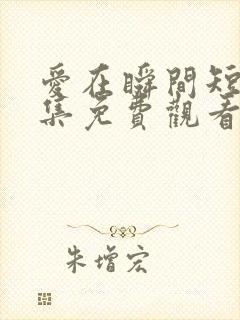 愛在瞬間短
集免費觀看
朱增宏